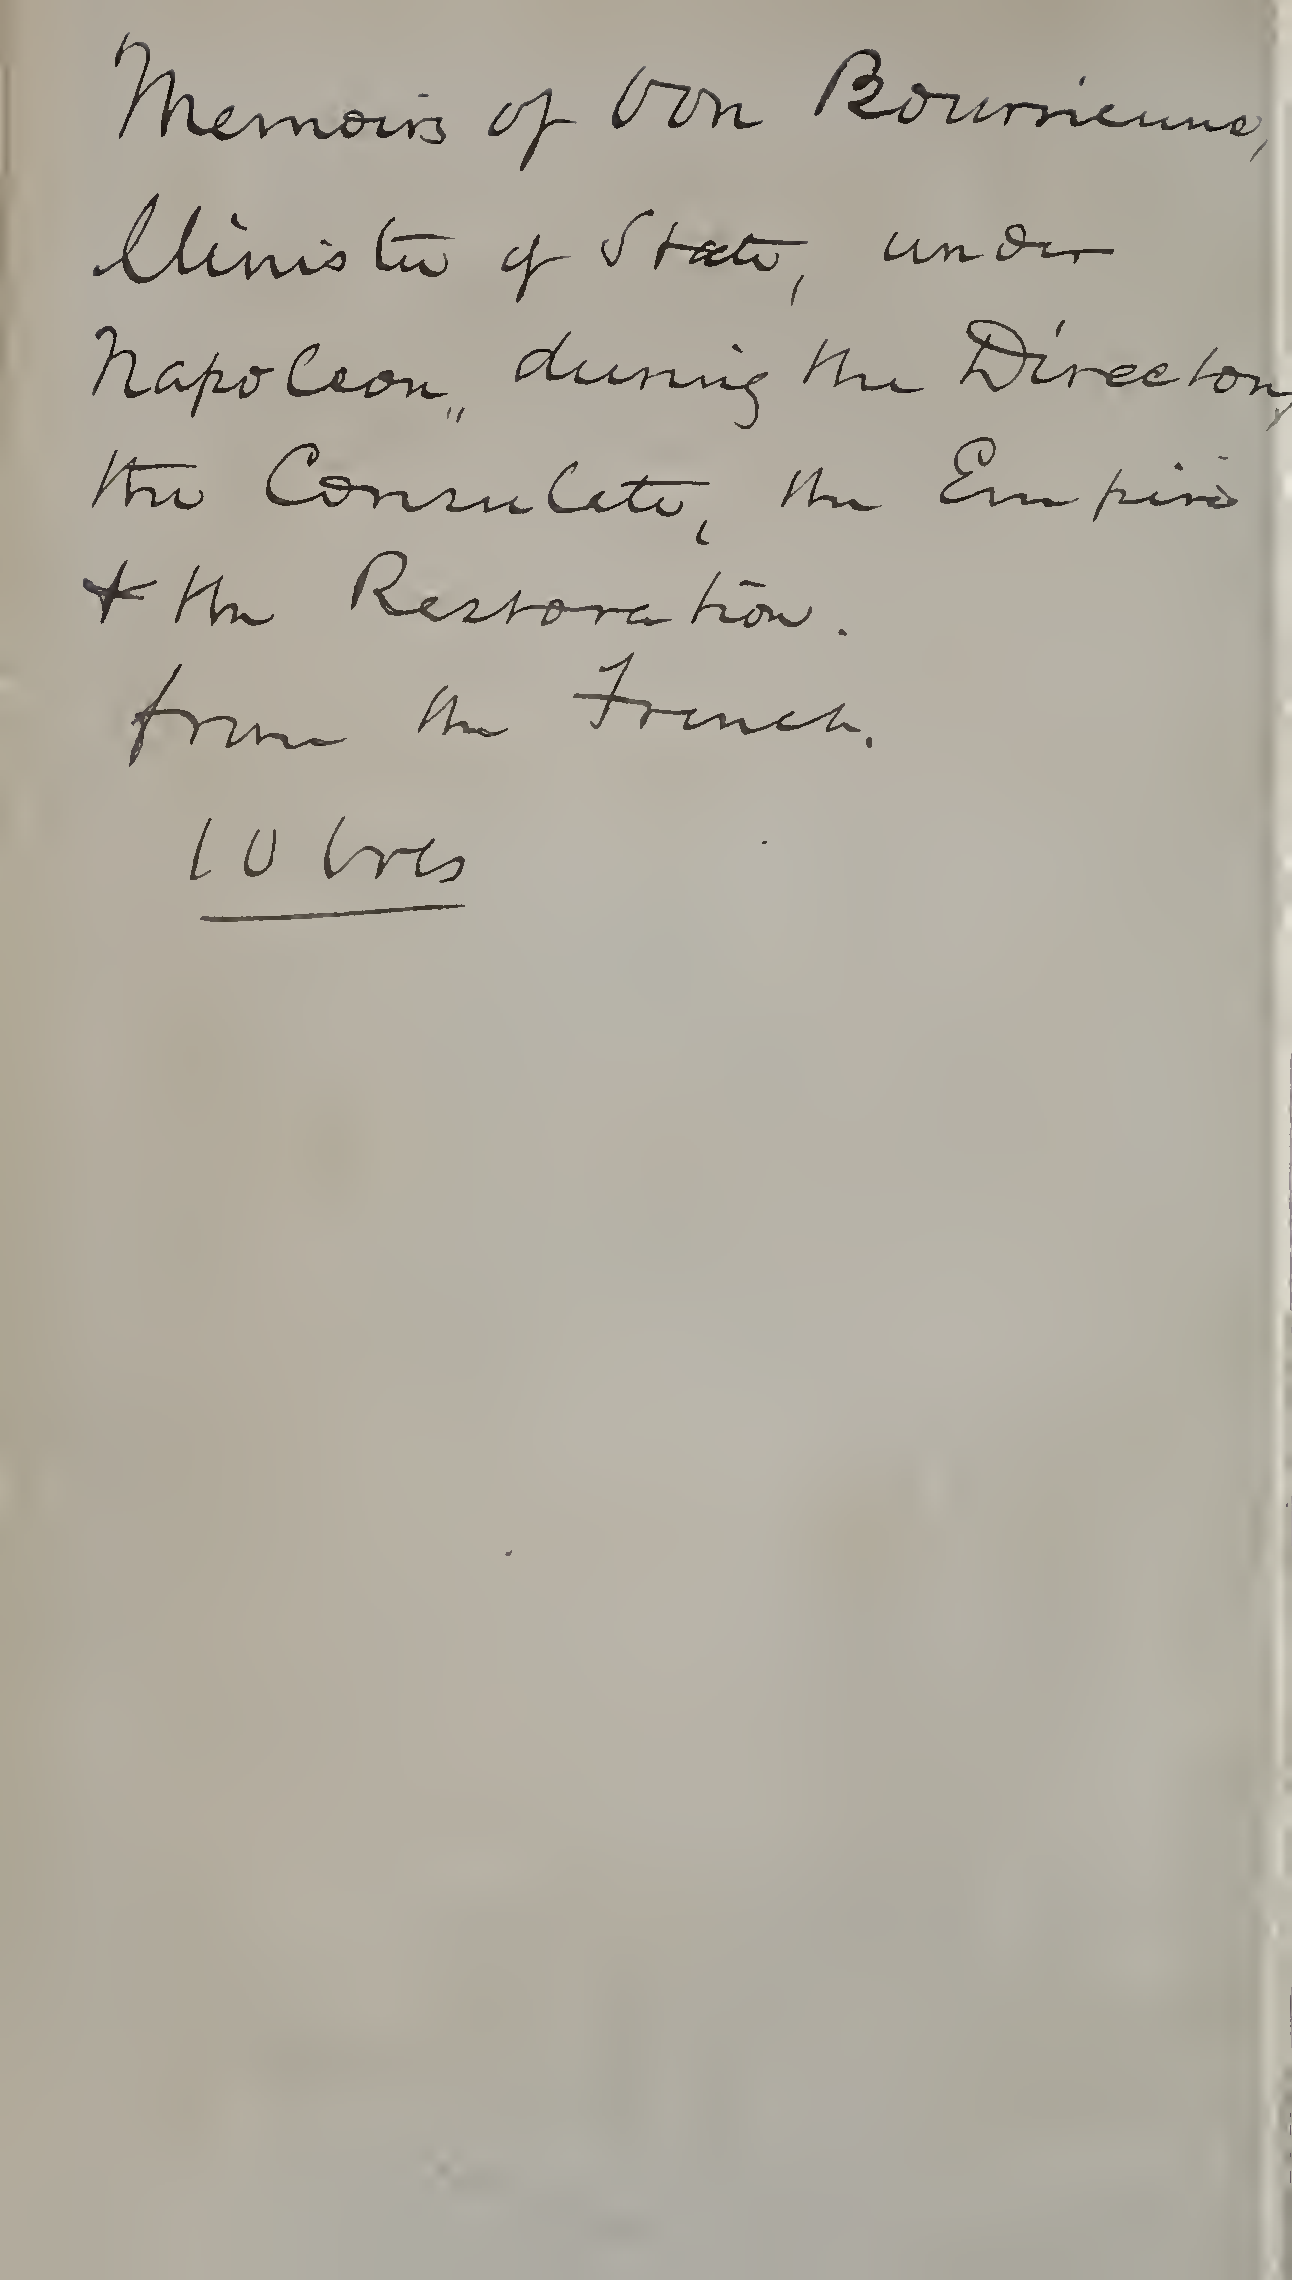 Memoirs of von Bourrienne,
Minister of State, under
Napoleon,, during the Directory,
the Consulate, the Empire
+ the Restoration.
from the French.
10 vols